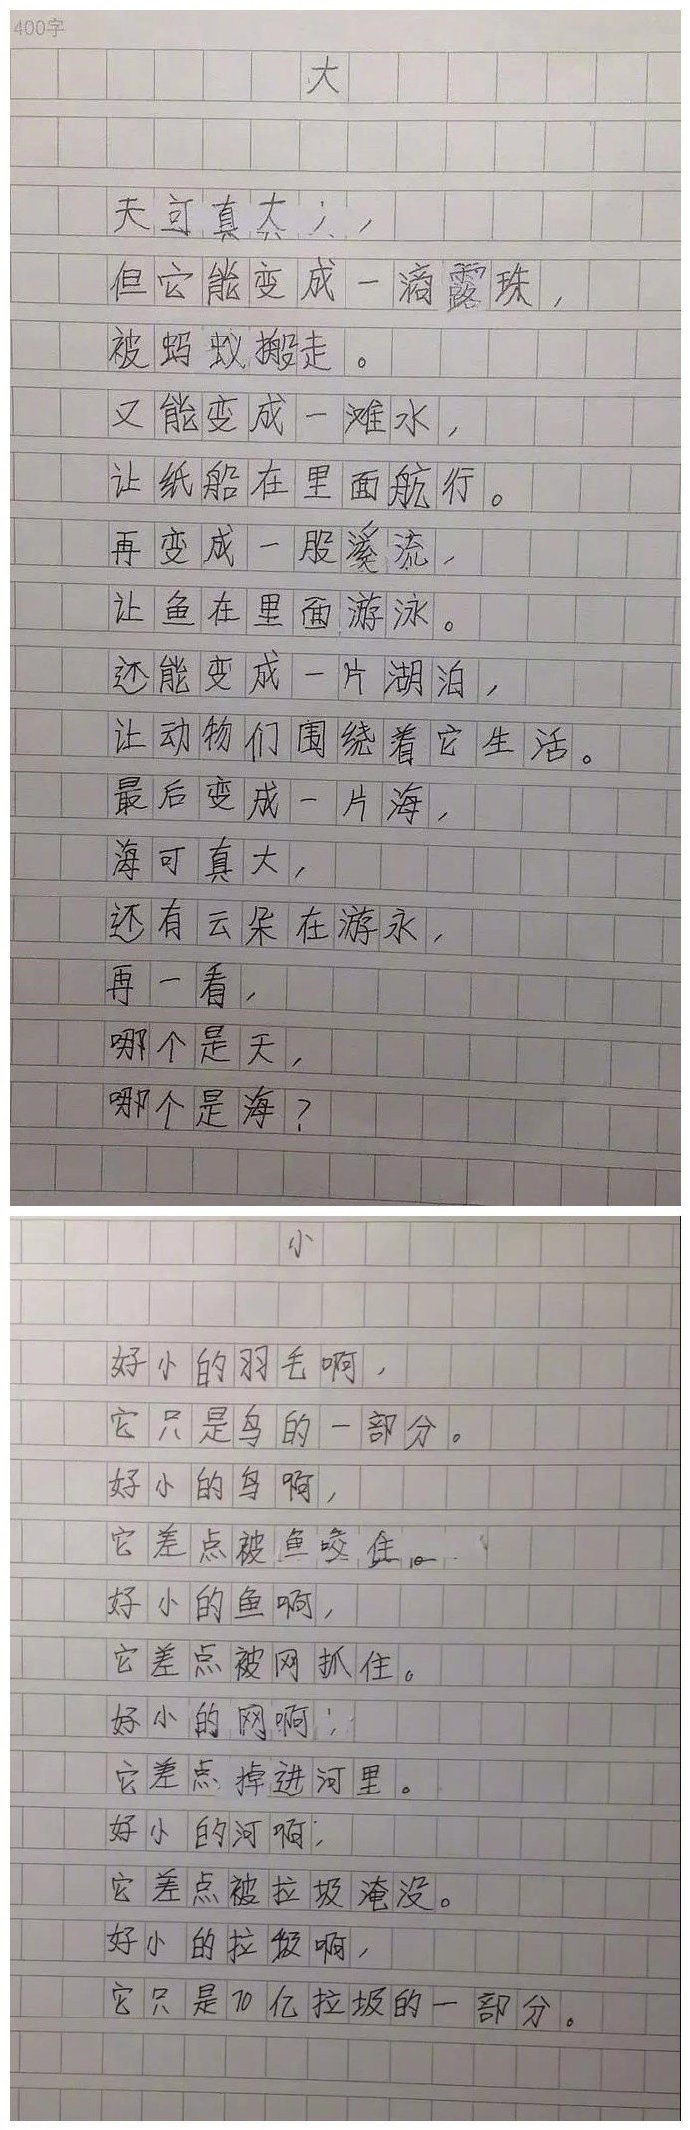 400字
大
天可真大,
但它能变成一滴露珠,
被蚂蚁搬走。
又能变成一滩水,
让纸船在里面航行。
再变成一股溪流,
让鱼在里面游泳。
还能变成一片湖泊,
让动物们围绕着它生活。
最后变成一片海,
海可真大,
还有云朵在游永,
再一看,
哪个是天,
哪个是海?
小
好小的羽毛啊,
它只是鸟的一部分。
好小的鸟啊,
它差点被鱼咬住。
好小的鱼啊,
它差点被网抓住。
好小的网啊,
它差点掉进河里。
好小的河啊,
它差点被垃圾淹没。
好小的垃圾啊,
它只是70亿垃圾的一部分。